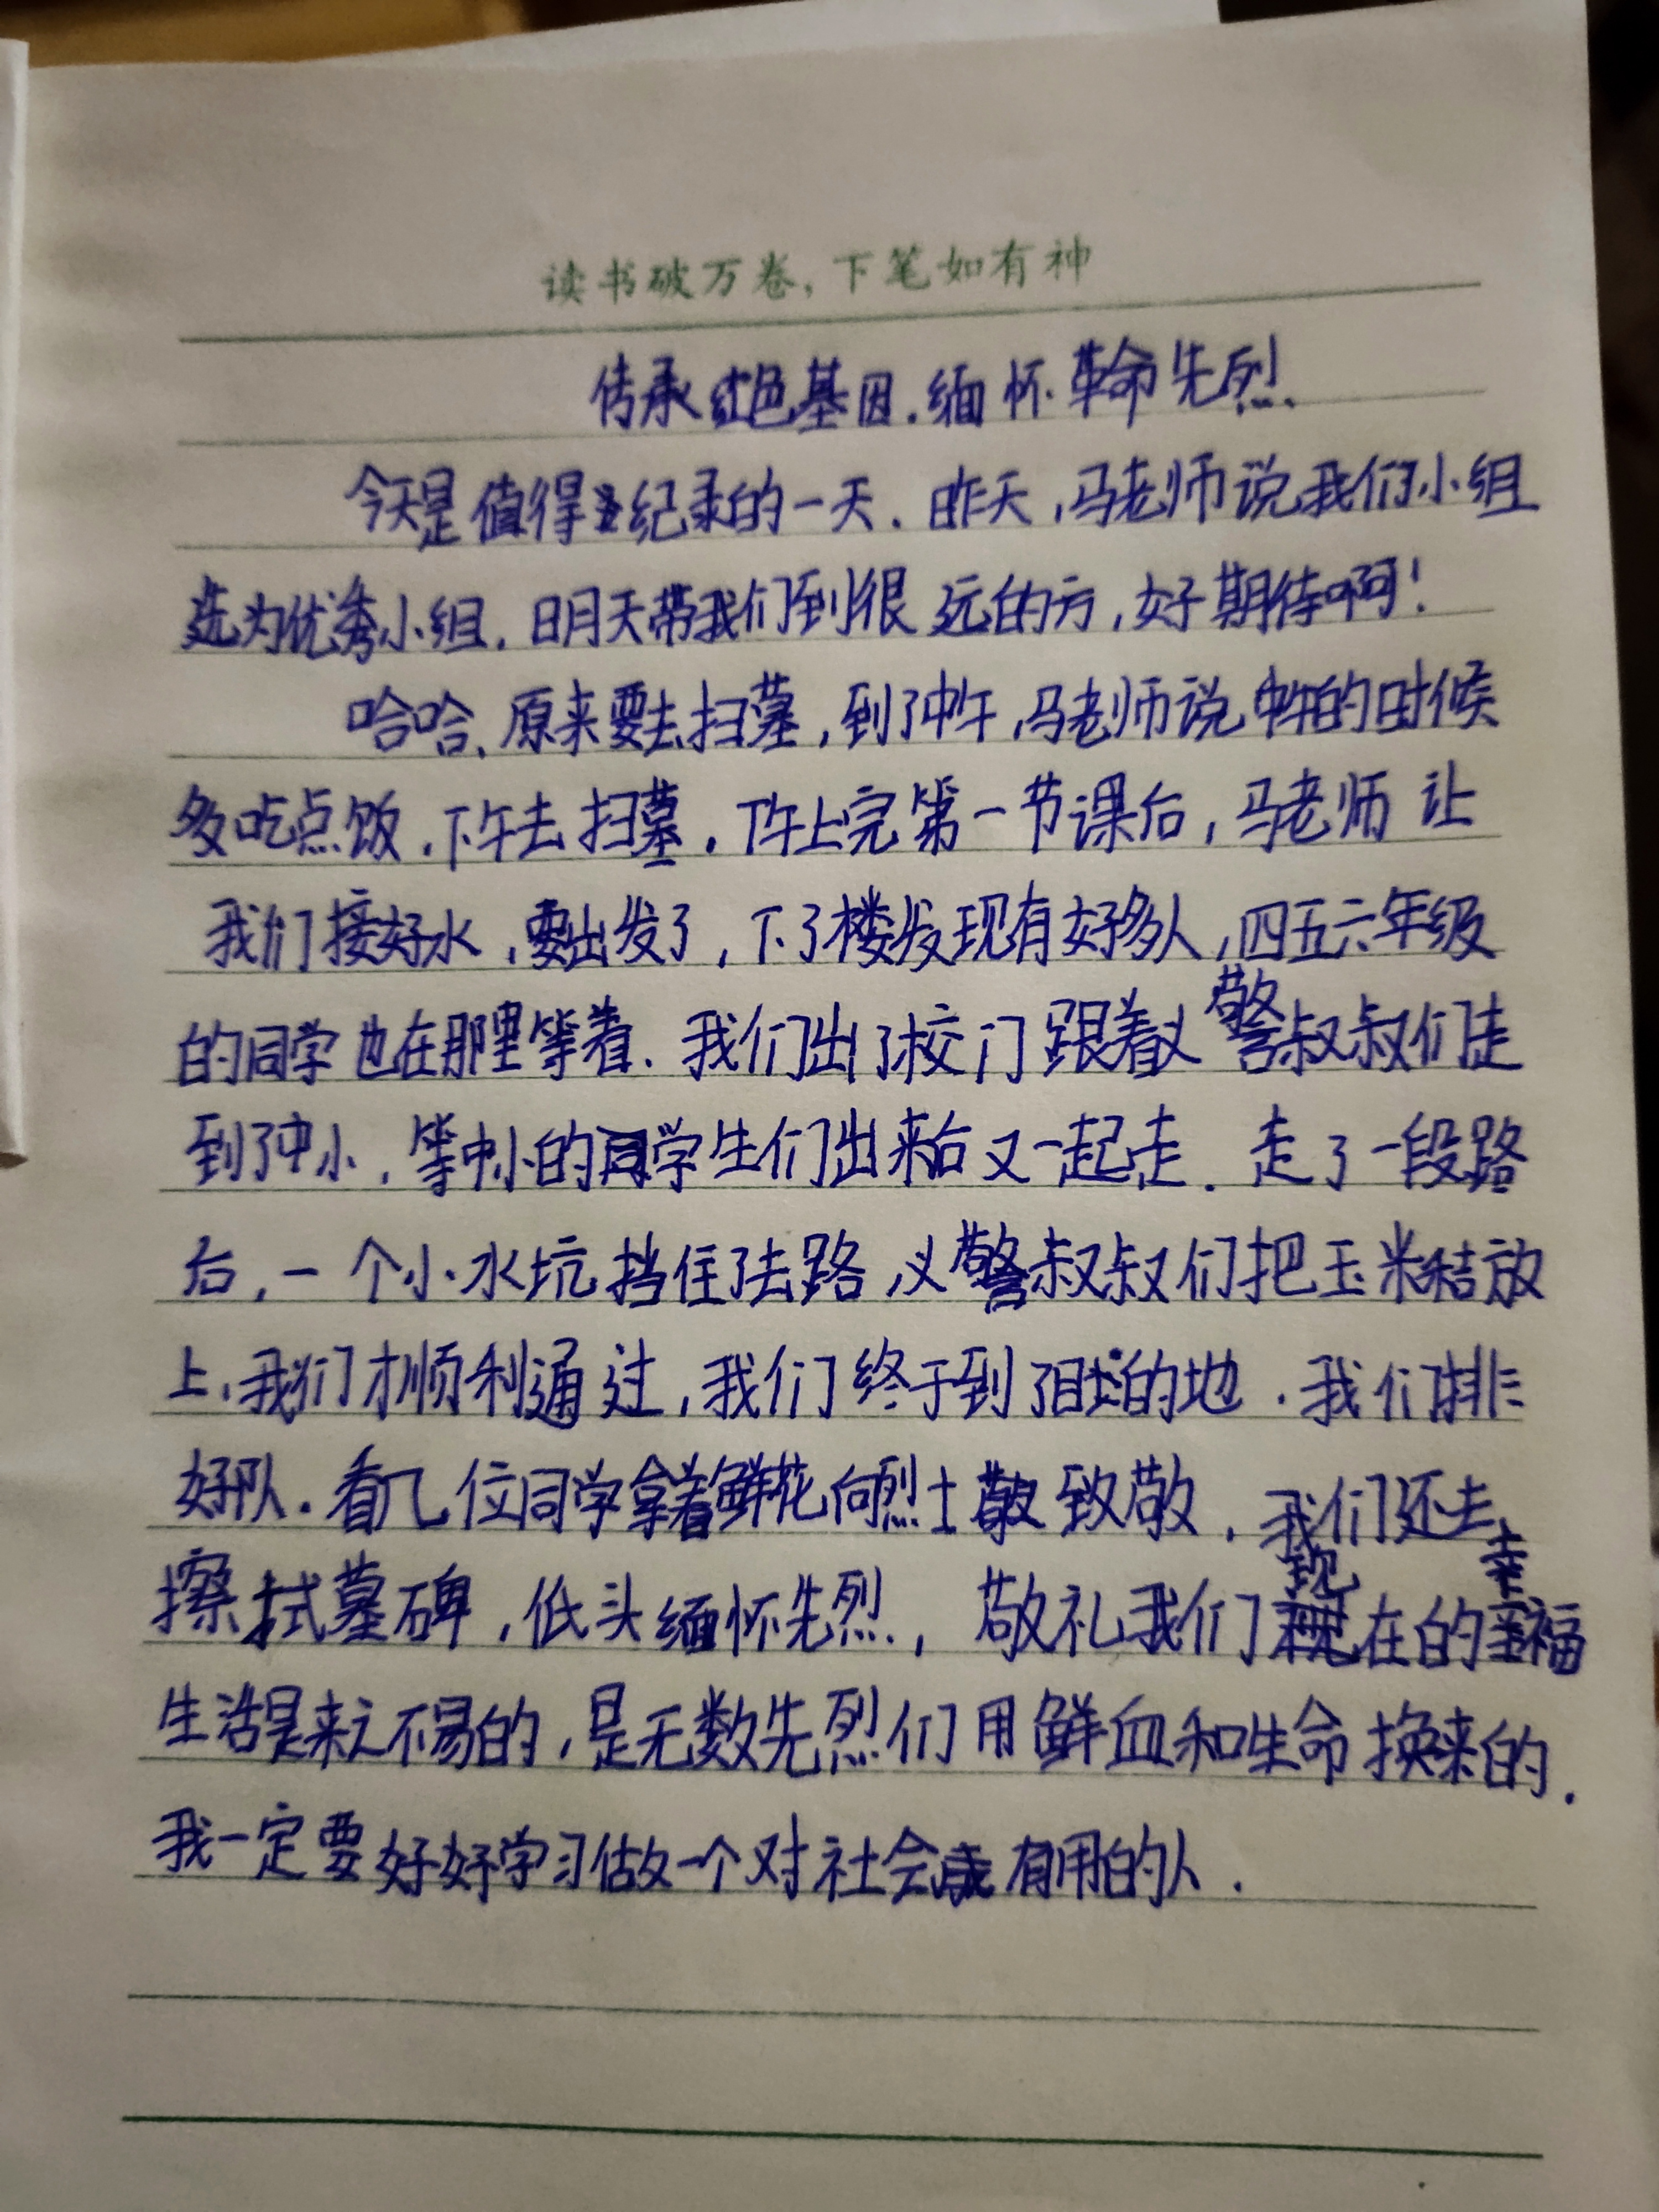 读书破万卷，下笔如有神
传承红色基因.缅怀革命先烈.
今天是值得纪录的一天.昨天,马老师说我们小组
选为优秀小组.明天带我们到很远的方,好期待啊!
哈哈、原来要去扫墓,到了中午,马老师说中午的时候
多吃点饭.下午去扫墓.下午上完第一节课后,马老师让
我们接好水,要出发了,下了楼发现有好多人,四五六年级
的同学也在那里等着.我们出了校门跟着义警叔叔们走
到了中小,等中小的同学生们出来后又一起走.走了一段路
后,一个小水坑挡住了去路,义警叔叔们把玉米秸放
上,我们才顺利通过,我们终于到了目的地.我们排
好队.看几位同学拿着鲜花向烈士致敬,我们还去
擦拭墓碑,低头缅怀先烈,敬礼我们现在的幸福
生活是来之不易的,是无数先烈们用鲜血和生命换来的.
我一定要好好学习做一个对社会有用的人.